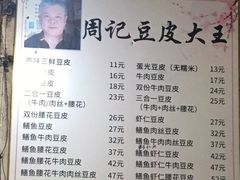 周记豆皮大王
鲜三鲜豆皮 11元
蛋光豆皮（无糯米） 13元
豆皮 16元
牛肉豆皮 17元
豆皮 18元
双份牛肉豆皮 23元
二合一豆皮 24元
三合一豆皮 25元
（牛肉/肉丝+腰花）
（牛肉+肉丝+腰花）
双份腰花豆皮 26元
虾仁豆皮 27元
鳝鱼豆皮 27元
鳝鱼肉丝豆皮 32元
鳝鱼牛肉豆皮 32元
鳝鱼虾仁豆皮 37元
鳝鱼腰花豆皮 37元
鳝鱼虾仁肉丝豆皮 42元
鳝鱼牛肉肉丝豆皮 37元
鳝鱼虾仁牛肉豆皮 42元
鳝鱼腰花肉丝豆皮 42元
鳝鱼虾仁腰花豆皮 47元
鳝鱼腰花牛肉豆皮 42元